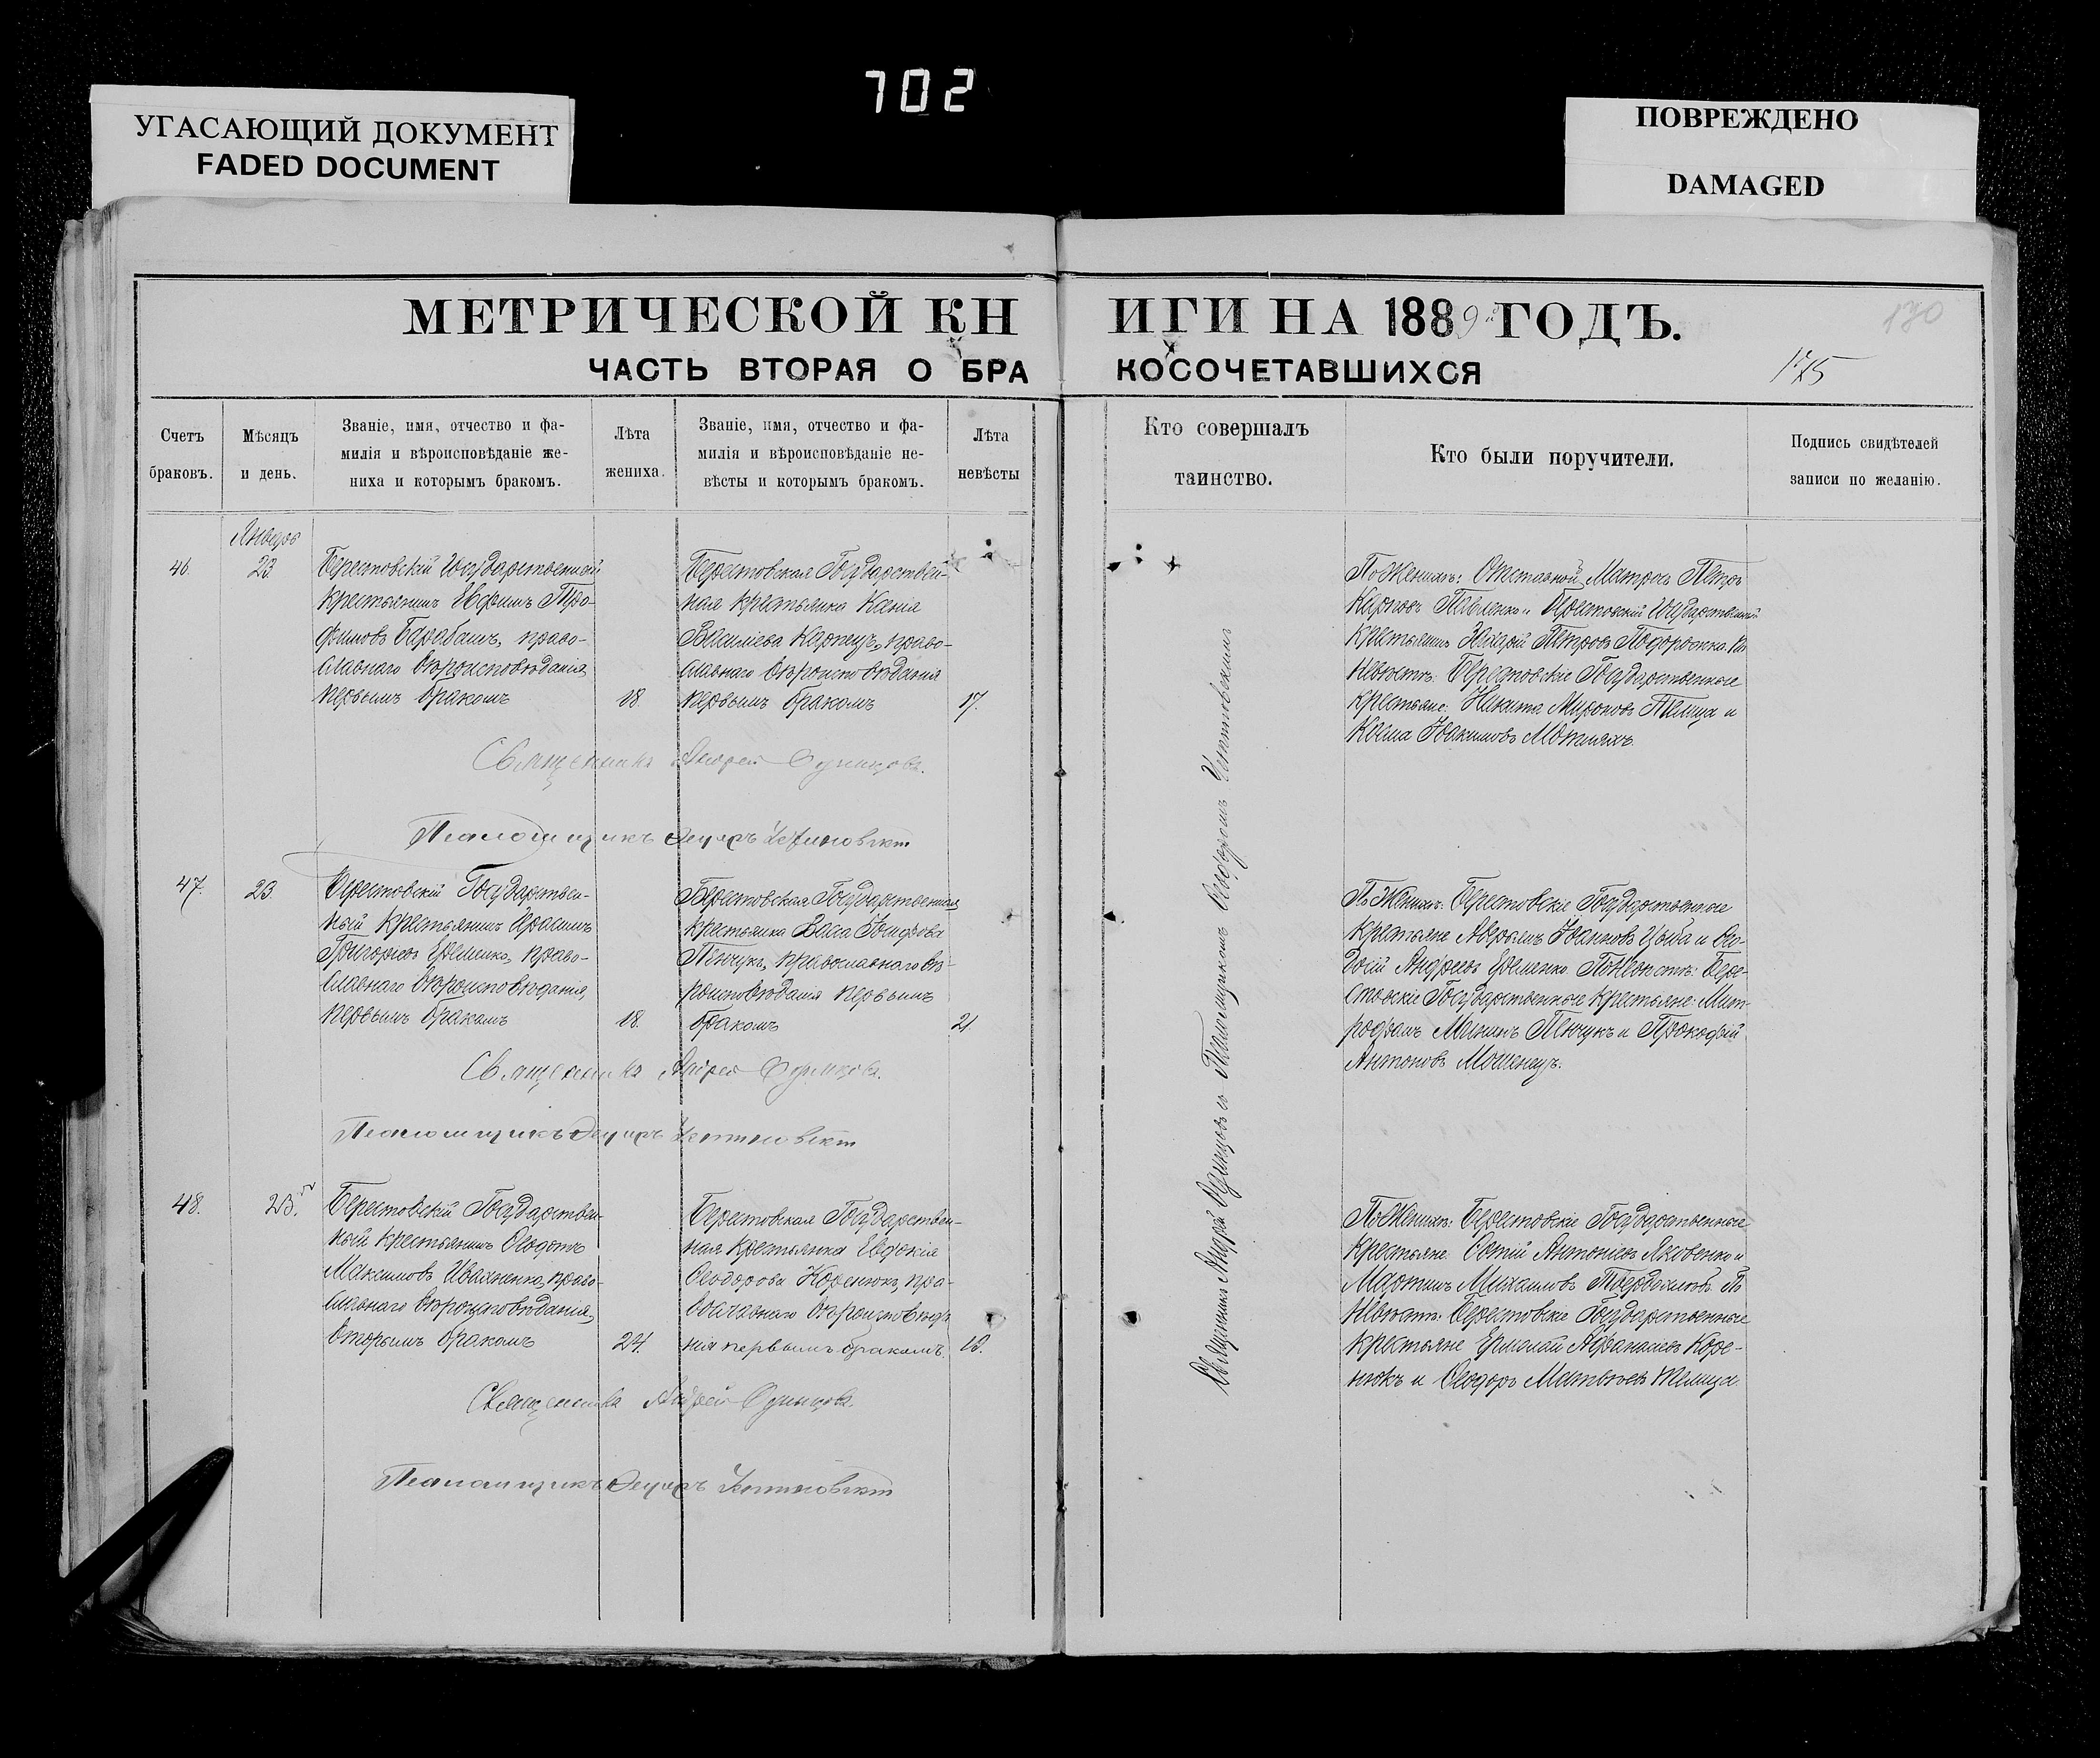 702
УГАСАЮЩИЙ ДОКУМЕНТ
FADED DOCUMENT
ПОВРЕЖДЕНО
DAMAGED
МЕТРИЧЕСКОЙ КНИГИ НА 1889й ГОДЪ.
180
ЧАСТЬ ВТОРАЯ О БРАКОСОЧЕТАВШИХСЯ
175
Счетъ браковъ.
Мѣсяцъ и день.
Званіе, имя, отчество и фа-
милія и вѣроисповѣданіе же-
ниха и которымъ бракомъ.
Лѣта жениха.
Званіе, имя, отчество и фа-
милія и вѣроисповѣданіе не-
вѣсты и которымъ бракомъ.
Лѣта невѣсты
Кто совершалъ таинство.
Кто были поручители.
Подпись свидѣтелей
записи по желанію.
Январь
46.
23.
Берестовскій Государственный
крестьянинъ Евфимъ Тро-
фимовъ Барабашъ, право-
славнаго вѣроисповѣданія
первымъ бракомъ
18.
Берестовская Государствен-
ная крестьянка Ксенія
Василіева Карпецъ, право-
славнаго вѣроисповѣданія
первымъ бракомъ
17.
По Женихѣ: Отставной Матросъ Петръ
Карповъ Павленко и Берестовскій Государственный
крестьянинъ Захарій Петровъ Подорожка. По
невѣстѣ: Берестовскіе Государственные
крестьяне: Никита Мироновъ Телица и
Косма Іоакимовъ
Священникъ Андрей Одинцовъ.
Псаломщикъ Ѳеодоръ
47.
23.
Берестовскій Государствен-
ный крестьянинъ Герасимъ
Григоріевъ Еременко, право-
славнаго вѣроисповѣданія,
первымъ бракомъ
18.
Берестовская Государственная
крестьянка Васса Іосифова
Пенчукъ, православнаго вѣ-
роисповѣданія первымъ
бракомъ
21
По Женихѣ: Берестовскіе Государственные
крестьяне Аврамъ Іоанновъ Цыба и Ѳео-
досій Андреевъ Еременко. По Невѣстѣ: Бере-
стовскіе Государственные крестьяне: Мит-
рофанъ Пенчукъ и Прокофій
Антоновъ
Священникъ Андрей Одинцовъ.
Псаломщикъ Ѳеодоръ
48.
23.
Берестовскій Государствен-
ный крестьянинъ Ѳеодотъ
Максимовъ Ивахненко, право-
славнаго вѣроисповѣданія,
вторымъ бракомъ
24.
Берестовская Государствен-
ная крестьянка Евдокія
Ѳеодорова Коренюкъ, пра-
вославнаго вѣроисповѣда-
нія первымъ бракомъ
18.
По Женихѣ: Берестовскіе Государственные
крестьяне Антоніевъ Яковенко и
Мартинъ Михаиловъ По
Невѣстѣ: Берестовскіе Государственные
крестьяне Ермолай Аѳанасіевъ Коре-
нюкъ и Ѳеодоръ Матвѣевъ Телица.
Священникъ Андрей Одинцовъ.
Псаломщикъ Ѳеодоръ
Священникъ Андрей Одинцовъ съ Псаломщикомъ Ѳеодоромъ